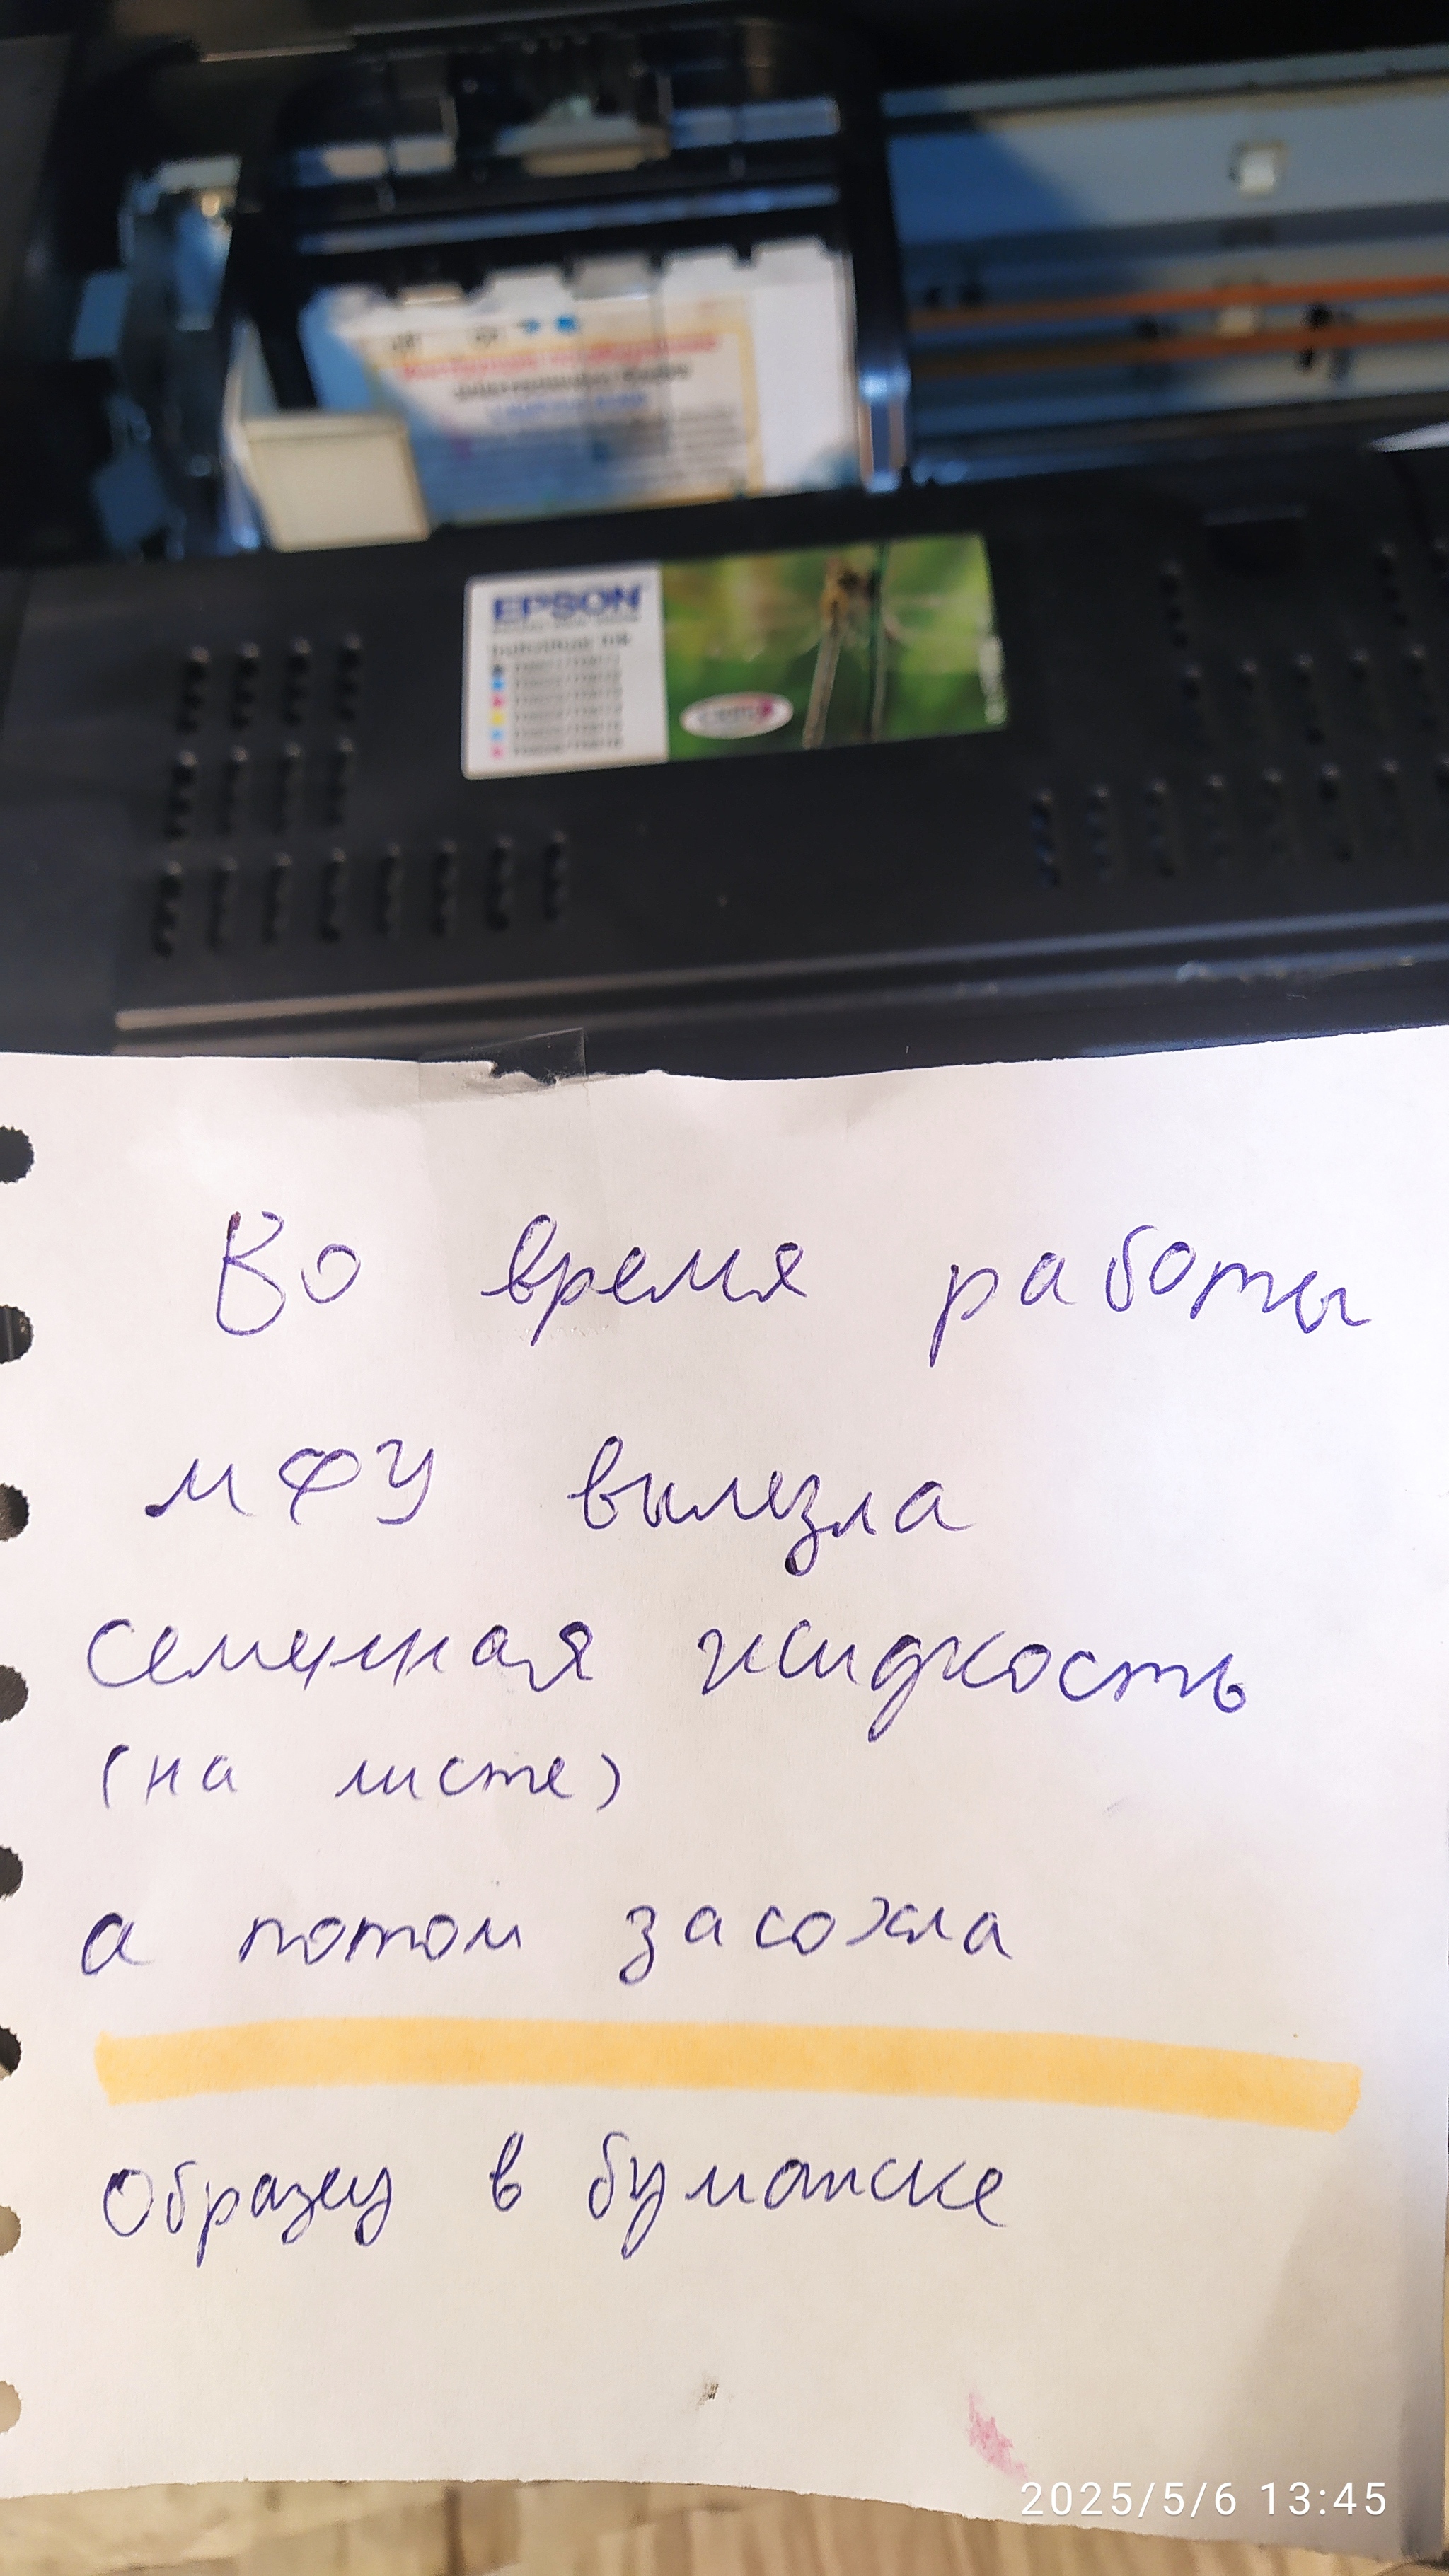 EPSON
Во время работы
МФУ вылезла
семенная жидкость
(на листе)
а потом засохла
Образец в бумажке
2025/5/6 13:45